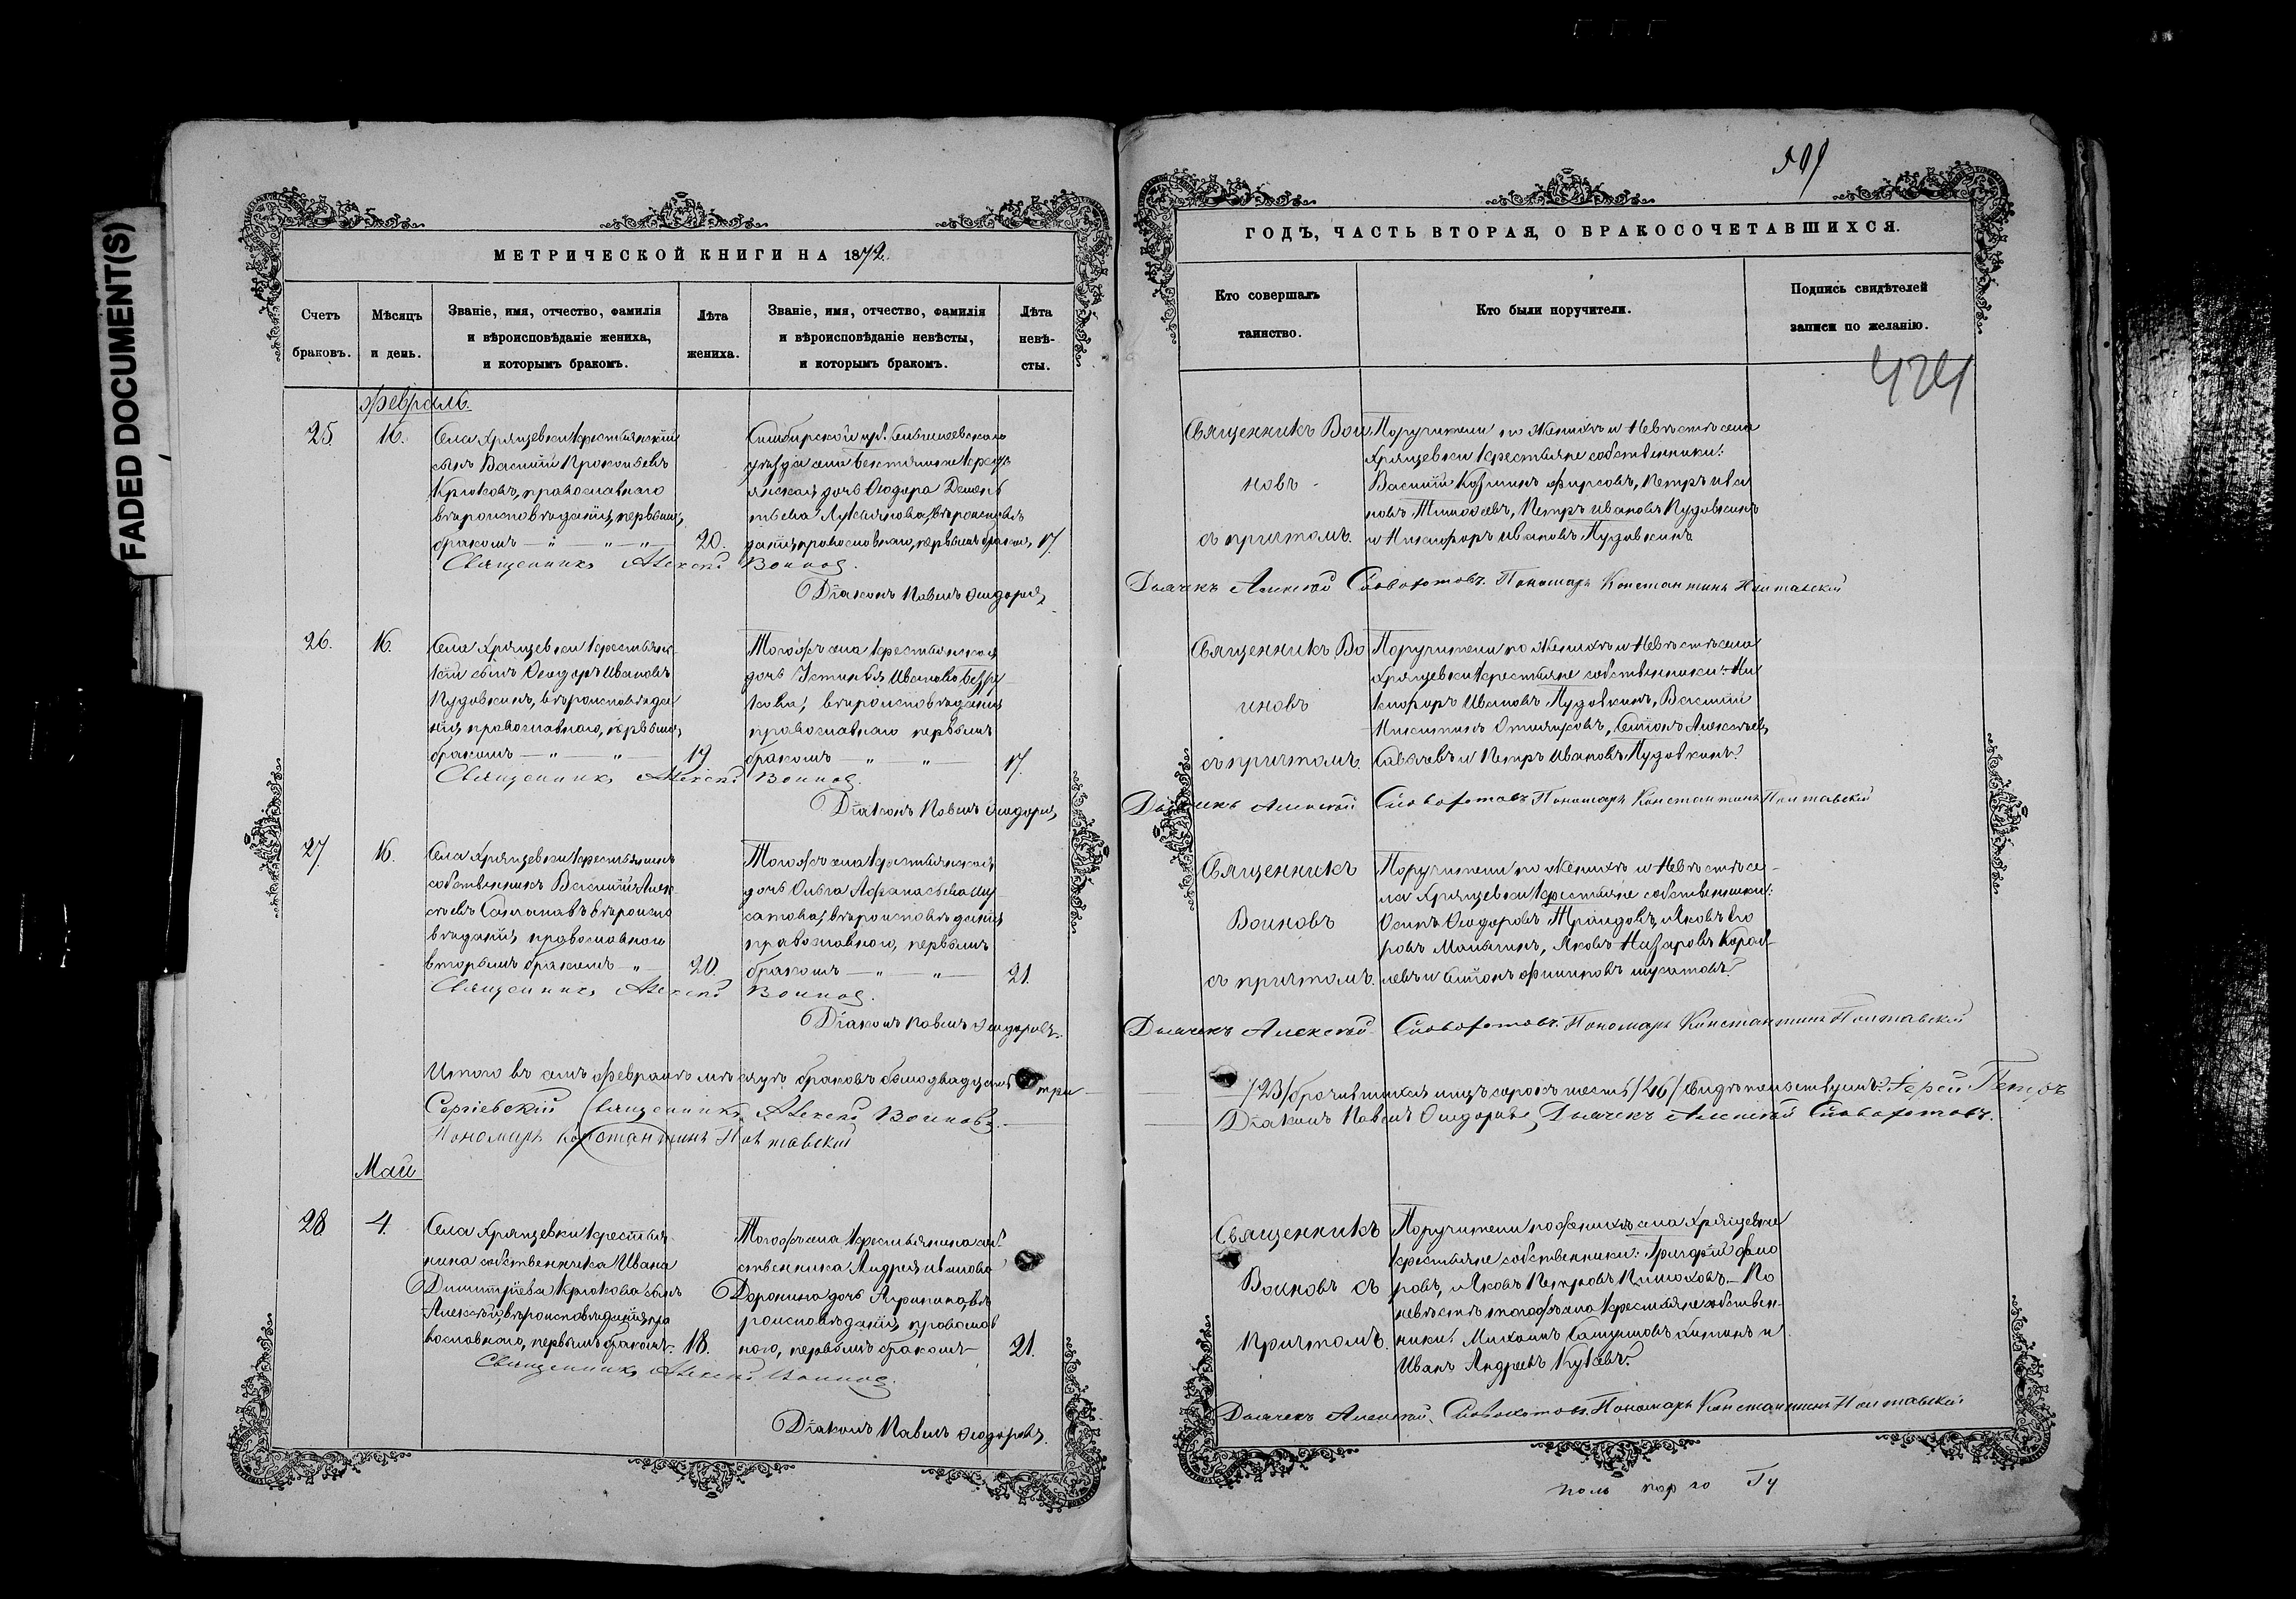 FADED DOCUMENT(S)
МЕТРИЧЕСКОЙ КНИГИ НА 1872.
Счетъ браковъ.
Мѣсяцъ и день.
Званіе, имя, отчество, фамилія и вѣроисповѣданіе жениха, и которымъ бракомъ.
Лѣта жениха.
Званіе, имя, отчество, фамилія и вѣроисповѣданіе невѣсты, и которымъ бракомъ.
Лѣта невѣ-
сты.
Февраль.
25.
16.
Села Хрящевки крестьянскій
сынъ Василій Прокопьевъ
Крюковъ, православнаго
вѣроисповѣданія, первымъ
бракомъ — " — " — " —
20.
Симбирской губ.
уѣзда села крестьянская дочь Ѳеодора Демен
тьева Лукьянова, вѣроисповѣ
данія православнаго, первымъ бракомъ,
17.
Священникъ Алексей Воиновъ.
Діаконъ Павелъ Ѳеодоровъ
26.
16.
Села Хрящевки крестьянс-
кій сынъ Ѳеодоръ Ивановъ
Пудовкинъ, вѣроисповѣда
нія православнаго, первымъ
бракомъ — " — " —
19
Тогожъ села крестьянская
дочь Устинья Иванова Безру
кова, вѣроисповѣданія
православнаго первымъ
бракомъ — " — " —
17.
Священникъ Алексей Воиновъ.
Діаконъ Павелъ Ѳеодоровъ
27.
16.
Села Хрящевки крестьянинъ
собственникъ Василій Алек
сѣевъ вѣроиспо
вѣданія православнаго
вторымъ бракомъ — "
20.
Тогожъ села крестьянская
дочь Ольга Аѳанасьева Шу
сатова, вѣроисповѣданія
православнаго, первымъ
бракомъ — " — " —
21.
Священникъ Алексей Воиновъ.
Діаконъ Павелъ Ѳеодоровъ.
Итого въ семъ Февралѣ мѣсяцѣ браковъ было двадцать три
Сергіевскій Священникъ Алексей Воиновъ.
Пономарь Константинъ Полтавскій
Май
28.
4.
Села Хрящевки крестья
нина собственника Ивана
Димитріева Крюкова сынъ
Алексѣй, вѣроисповѣданія пра
вославнаго, первымъ бракомъ.
18.
Тогожъ села крестьянина соб-
ственника Андрея Иванова
Доронина дочь Агрипина, вѣ
роисповѣданія православ
наго, первымъ бракомъ —
21.
Священникъ Алексей Воиновъ.
Діаконъ Павелъ Ѳеодоровъ.
ГОДЪ, ЧАСТЬ ВТОРАЯ, О БРАКОСОЧЕТАВШИХСЯ.
Кто совершалъ таинство.
Кто были поручители.
Подпись свидѣтелей записи по желанію.
424
Священникъ Вои
новъ
съ причтомъ.
Поручители по женихѣ и невѣстѣ села
Хрящевки крестьяне собственники:
Василій Козминъ Фирсовъ, Петръ Ива
новъ Тимоѳеевъ, Петръ Ивановъ Пудовкинъ
и Никифоръ Ивановъ Пудовкинъ
Дьячекъ Алексей Сковородовъ. Пономарь Константинъ Полтавскій
Священникъ Во
иновъ
съ причтомъ.
Поручители по женихѣ и невѣстѣ села
Хрящевки крестьяне собственники: Ни
кифоръ Ивановъ Пудовкинъ, Василій
Никитинъ
и Петръ Ивановъ Пудовкинъ.
Пономарь Константинъ Полтавскій
Священникъ
Воиновъ
съ причтомъ.
Поручители по женихѣ и невѣстѣ се-
ла Хрящевки крестьяне собственники:
Осипъ Ѳеодоровъ Яковъ Его
ровъ Яковъ Назаровъ Корол-
левъ и
Дьячекъ Алексей Пономарь Константинъ Полтавскій
/23/ брачившихся лицъ сорокъ шесть /46/ свидѣтельствуемъ: Іерей Петръ
Діаконъ Павелъ Ѳеодоровъ, Дьячекъ Алексей
Священникъ
Воиновъ съ
причтомъ.
Поручители по женихѣ села Хрящевки
крестьяне собственники: Григорій Фло
ровъ, Яковъ Петровъ По
невѣстѣ тогожъ села крестьяне собствен-
ники: Михаилъ и
Иванъ Андреевъ
Дьячекъ Алексей Пономарь Константинъ Полтавскій